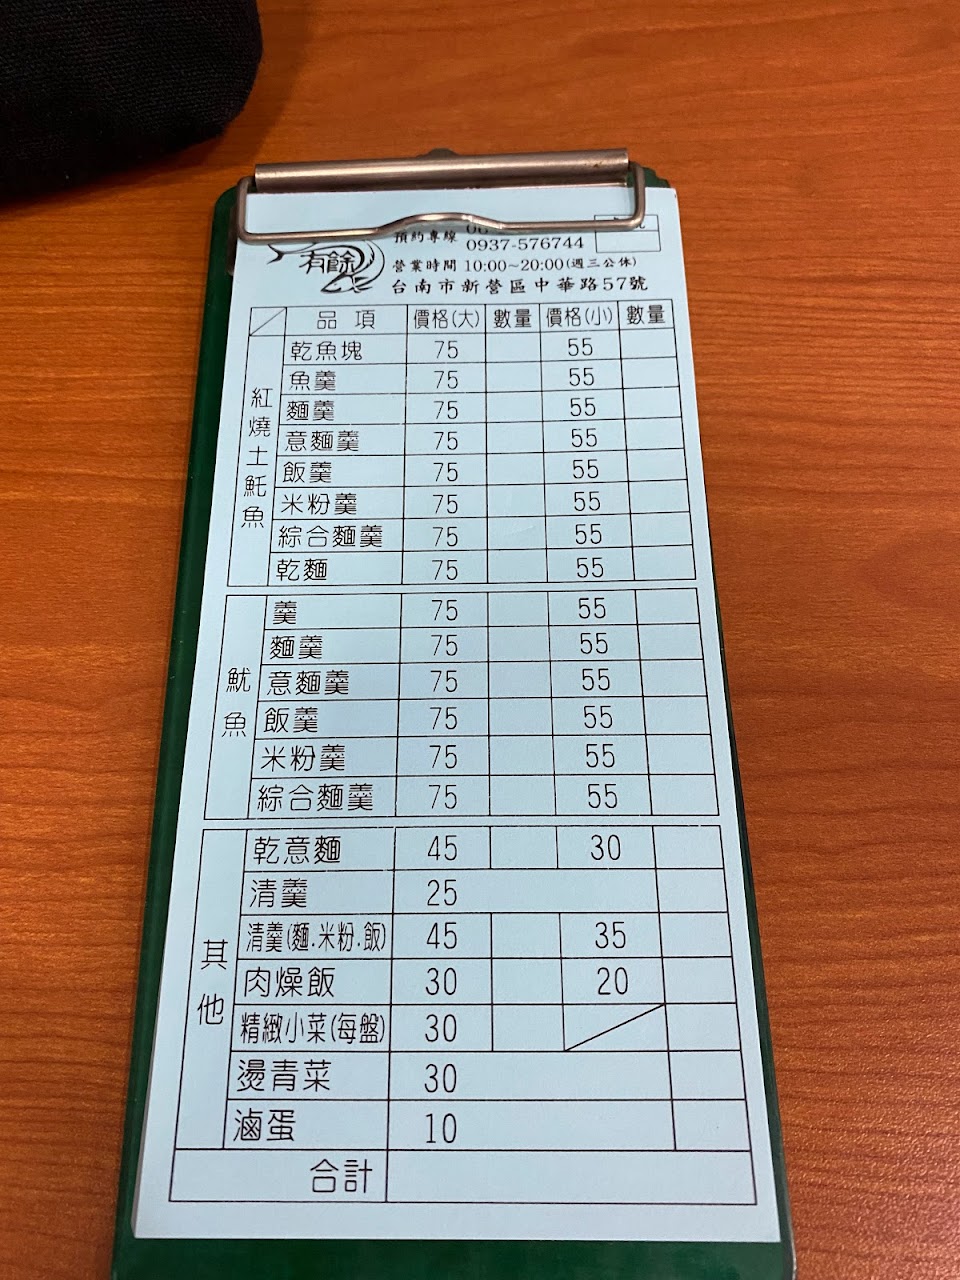 有餘
預約專線
0937-576744
營業時間 10:00~20:00(週三公休)
台南市新營區中華路57號
品項 價格(大) 數量 價格(小) 數量
紅燒土魠魚
乾魚塊 75 55
魚羹 75 55
麵羹 75 55
意麵羹 75 55
飯羹 75 55
米粉羹 75 55
綜合麵羹 75 55
乾麵 75 55
魷魚
羹 75 55
麵羹 75 55
意麵羹 75 55
飯羹 75 55
米粉羹 75 55
綜合麵羹 75 55
其他
乾意麵 45 30
清羹 25
清羹(麵.米粉.飯) 45 35
肉燥飯 30 20
精緻小菜(每盤) 30
燙青菜 30
滷蛋 10
合計